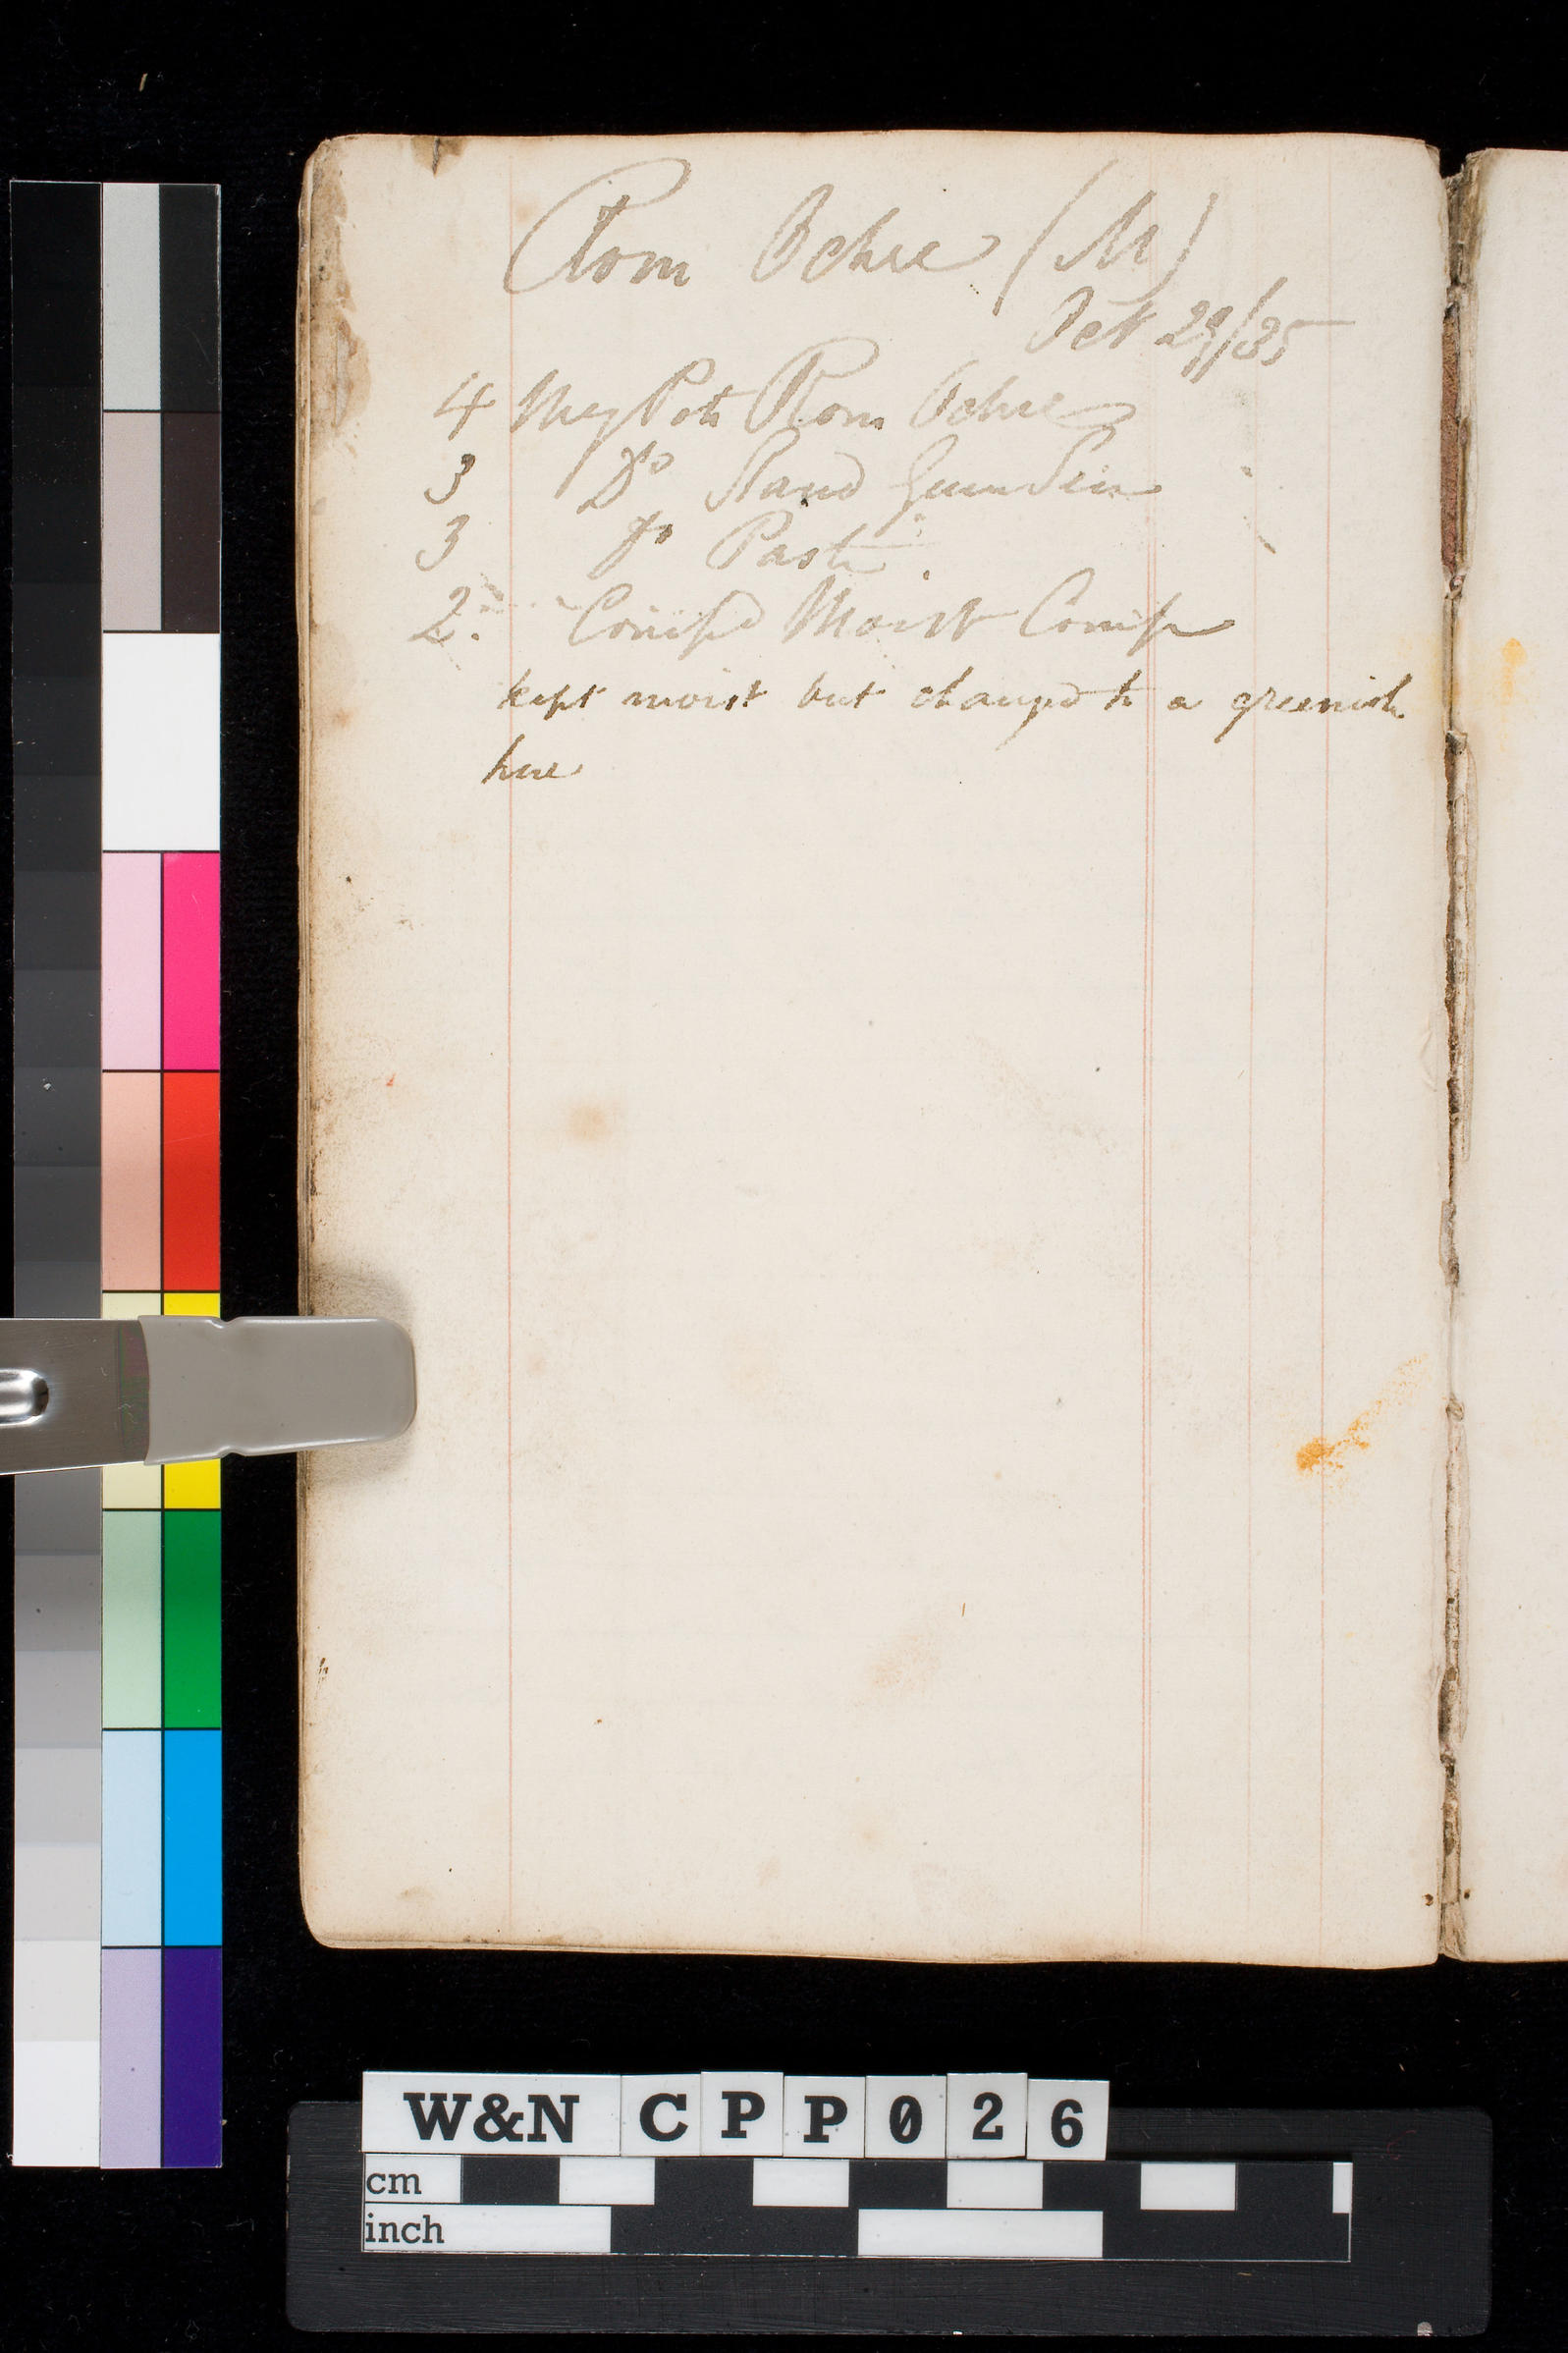 Rom Ochre (M)
Oct 29/35
4 Mug Pots Rom Ochre
3 Do Stand Gum Sen
3 Do Paste
2. Comp'd Moist Comp
kept moist but changed to a greenish
hue
W&N CPP026
cm
inch